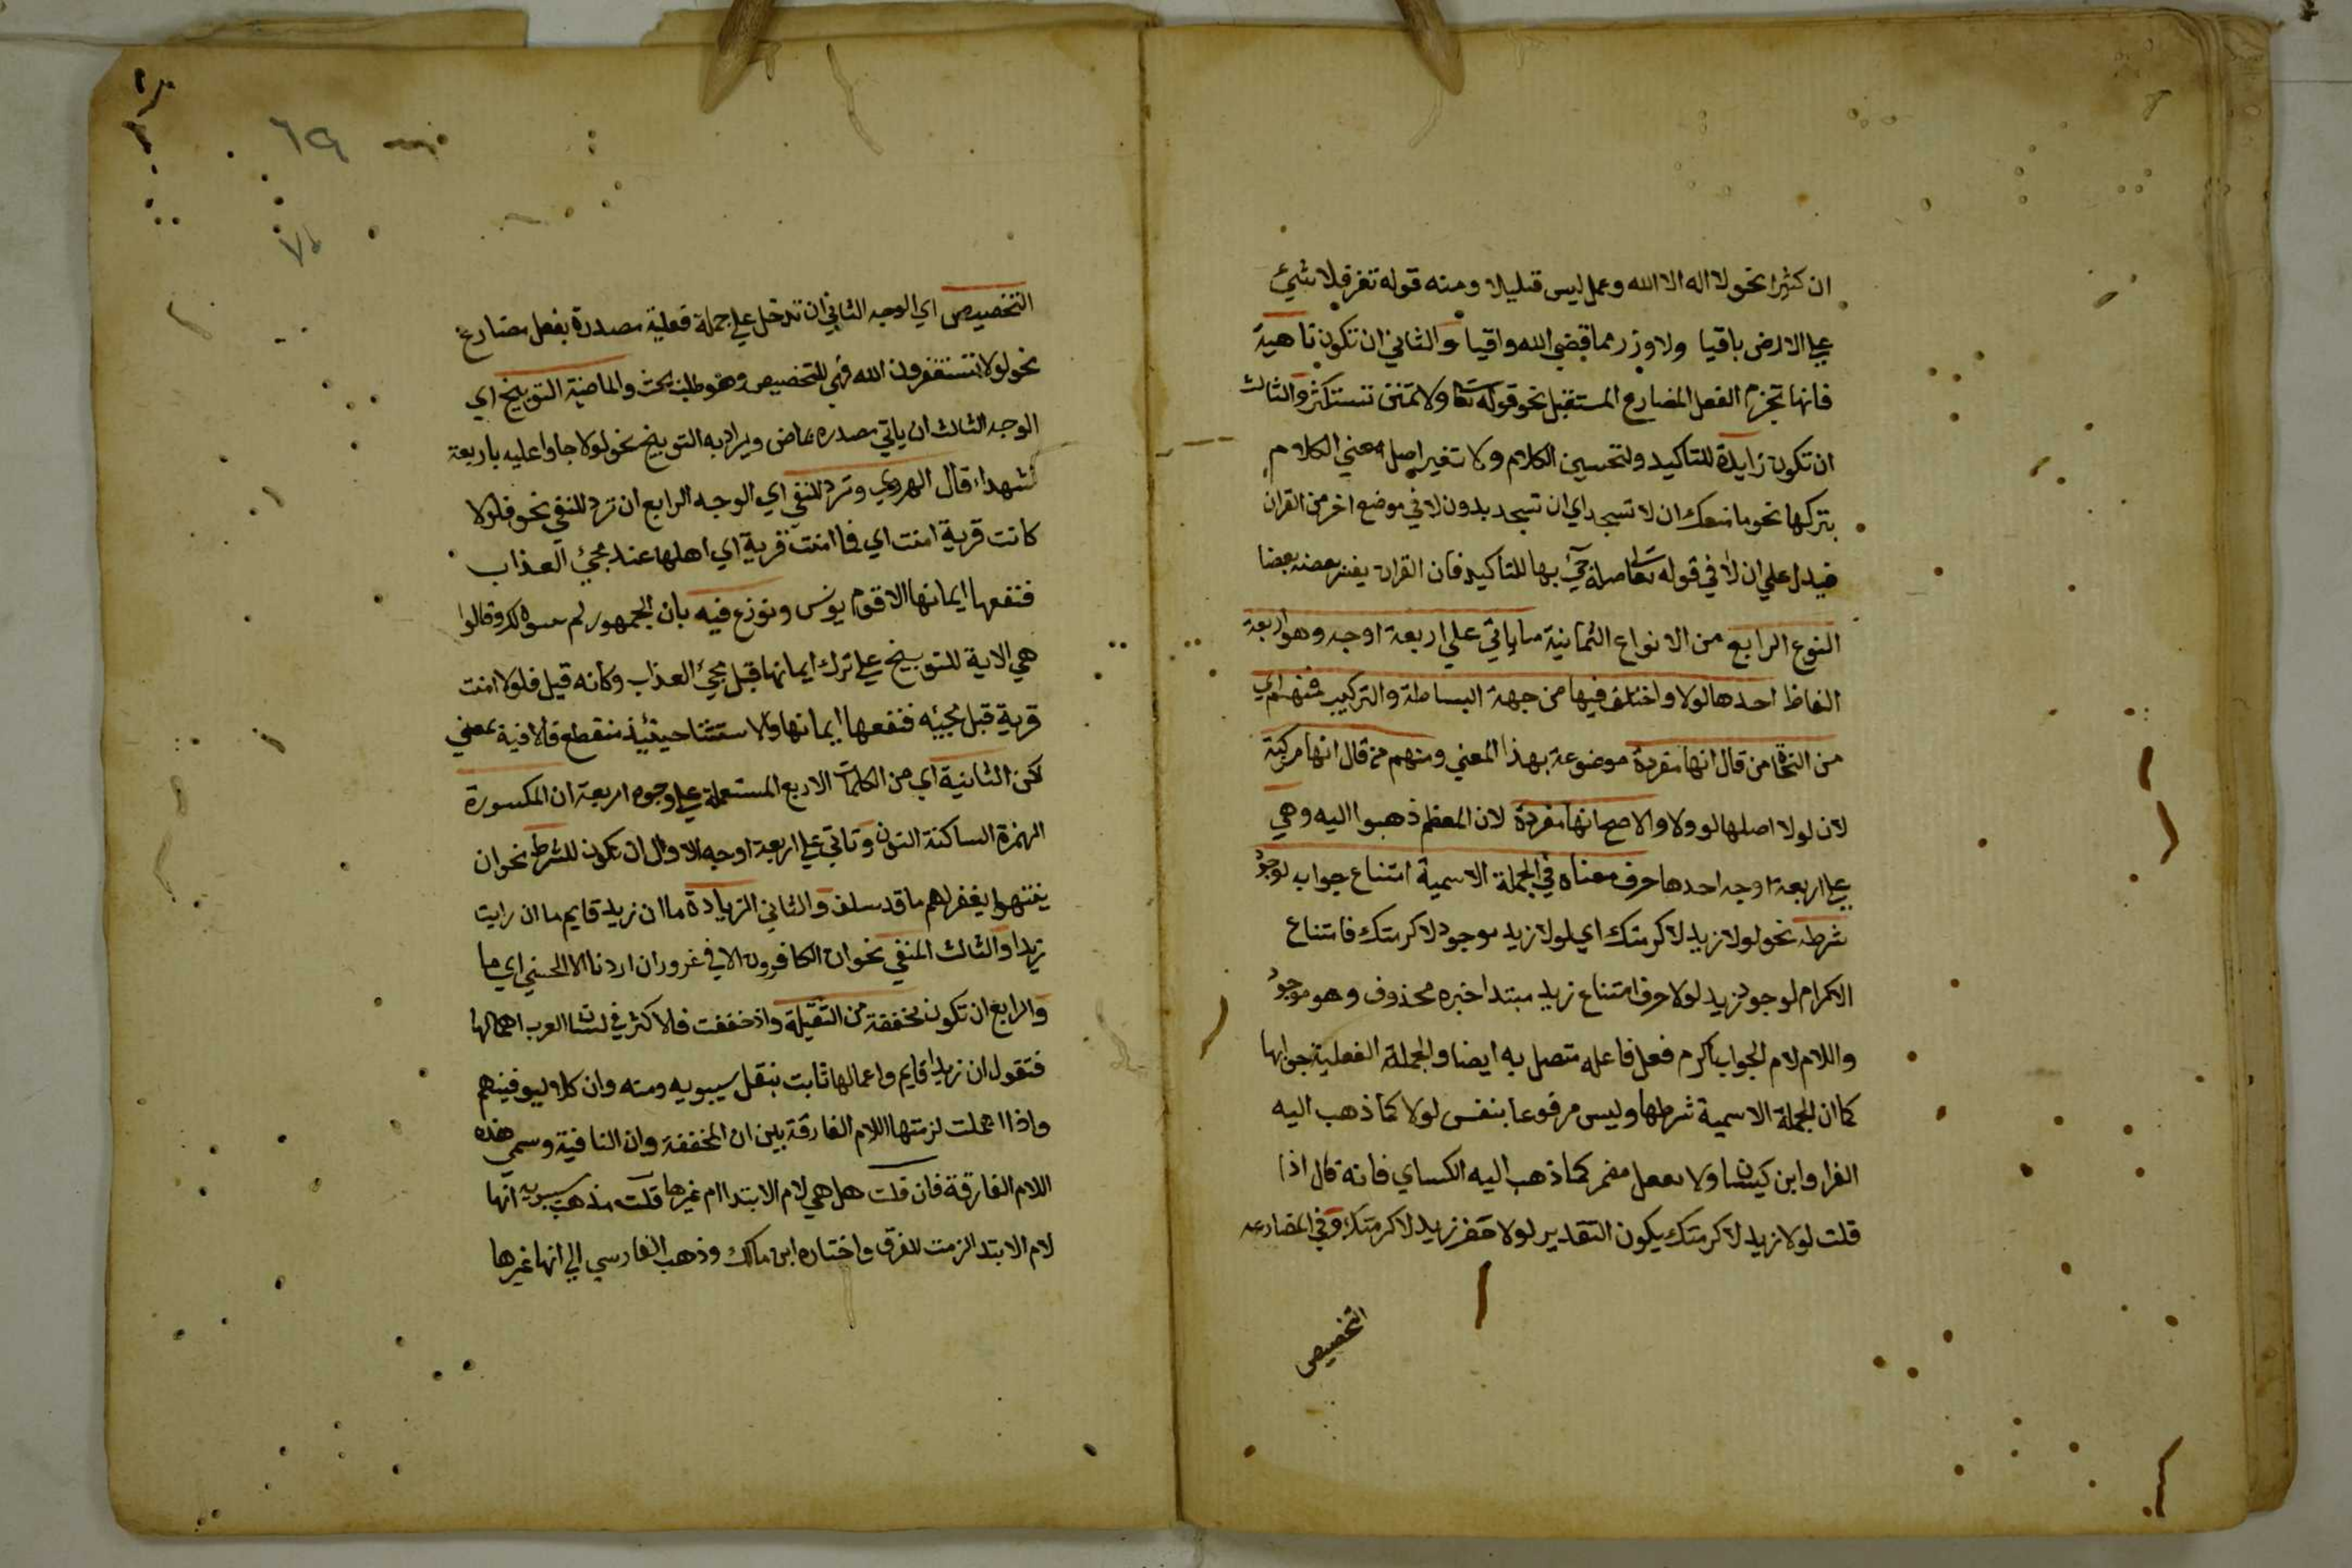 ان كثيرا نحو لا اله الا الله وعمل ليس قليلا ومنه قوله تعز فلا شيئ
علي الارض باقيا ولا وزر مما قضي الله واقيا والثاني ان تكون ناهية
فانها تجزم الفعل المضارع المستقبل نحو قوله تعا ولا تمنن تستكثر والثالث
ان تكون زايدة للتاكيد ولتحسين الكلام ولا تغير اصل معني الكلام
بتركها نحو ما منعك ان لا تسجد اي ان تسجد بدون لا في موضع اخر من القران
فيدل علي ان لا في قوله تعا صلة جئ بها للتاكيد فان القران يفسر بعضه بعضا
النوع الرابع من الانواع الثمانية ما ياتي علي اربعة اوجه وهو اربعة
الفاظ احدها لولا واختلف فيها من جهة البساطة والتركيب فمنهم اي
من النحاة من قال انها مفردة موضوعة بهذا المعني ومنهم من قال انها مركبة
لان لولا اصلها لو ولا والاصح انها مفردة لان المعظم ذهبوا اليه وهي
علي اربعة اوجه احدها حرف معناه في الجملة الاسمية امتناع جواب لوجود
شرطه نحو لولا زيد لاكرمتك اي لولا زيد موجود لاكرمتك فامتناع
الاكرام لوجود زيد لولا حرف امتناع زيد مبتدا خبره محذوف وهو موجود
واللام لام الجواب اكرم فعل فاعله متصل به ايضا والجملة الفعلية جوابها
كما ان الجملة الاسمية شرطها وليس مرفوعا بنفس لولا كما ذهب اليه
الفرا وابن كيسان ولا بفعل مضمر كما ذهب اليه الكساي فانه قال اذا
قلت لولا زيد لاكرمتك يكون التقدير لولا حضر زيد لاكرمتك وفي المضارعه
التخصيص
٦٩
التخصيص اي الوجه الثاني ان تدخل علي جملة فعلية مصدرة بفعل مضارع
نحو لولا تستغفرون الله فهي للتخصيص وهو طلب بحث والماضية التوبيخ اي
الوجه الثالث ان ياتي مصدره بماض ويراد به التوبيخ نحو لولا جاوا عليه باربعة
شهداء قال الهروي وترد للنفي اي الوجه الرابع ان ترد للنفي نحو فلولا
كانت قرية امنت اي فما امنت قرية اي اهلها عند مجئ العذاب
فنفعها ايمانها الا قوم يونس ونوزع فيه بان الجمهور لم وقالوا
هي الاية للتوبيخ علي ترك ايمانها قبل مجئ العذاب وكانه قيل فلولا امنت
قرية قبل مجيئه فنفعها ايمانها والاستثنا حينئذ منقطع فالا فيه بمعني
لكن الثانية اي من الكلمات الاربع المستعملة علي وجوه اربعة ان المكسورة
الهمزة الساكنة النون وتاتي علي اربعة اوجه الاول ان تكون للشرط نحو ان
ينتهوا يغفر لهم ما قد سلف والثاني الزيادة ما ان زيد قايم ما ان رايت
زيدا والثالث المنفي نحو ان الكافرون الا في غرور ان اردنا الا الحسني اي ما
والرابع ان تكون مخففة من الثقيلة واذ خففت فالاكثر في لسان العرب اهمالها
فتقول ان زيدا قايم واعمالها ثابت بنقل سيبويه ومنه وان كلا ليوفينهم
واذا اهملت لزمتها اللام الفارقة بين ان المخففة وان النافية وسمي هذه
اللام الفارقة فان قلت هل هي لام الابتدا ام غيرها قلت مذهب سيبويه انها
لام الابتدا لزمت للفرق واختاره ابن مالك وذهب الفارسي الي انها غيرها